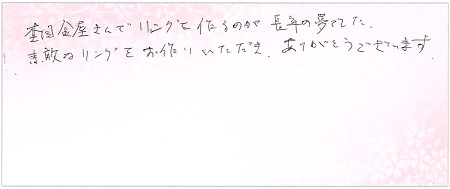 杢目金屋さんでリングを作るのが長年の夢でした。
素敵なリングをお作りいただき、ありがとうございます